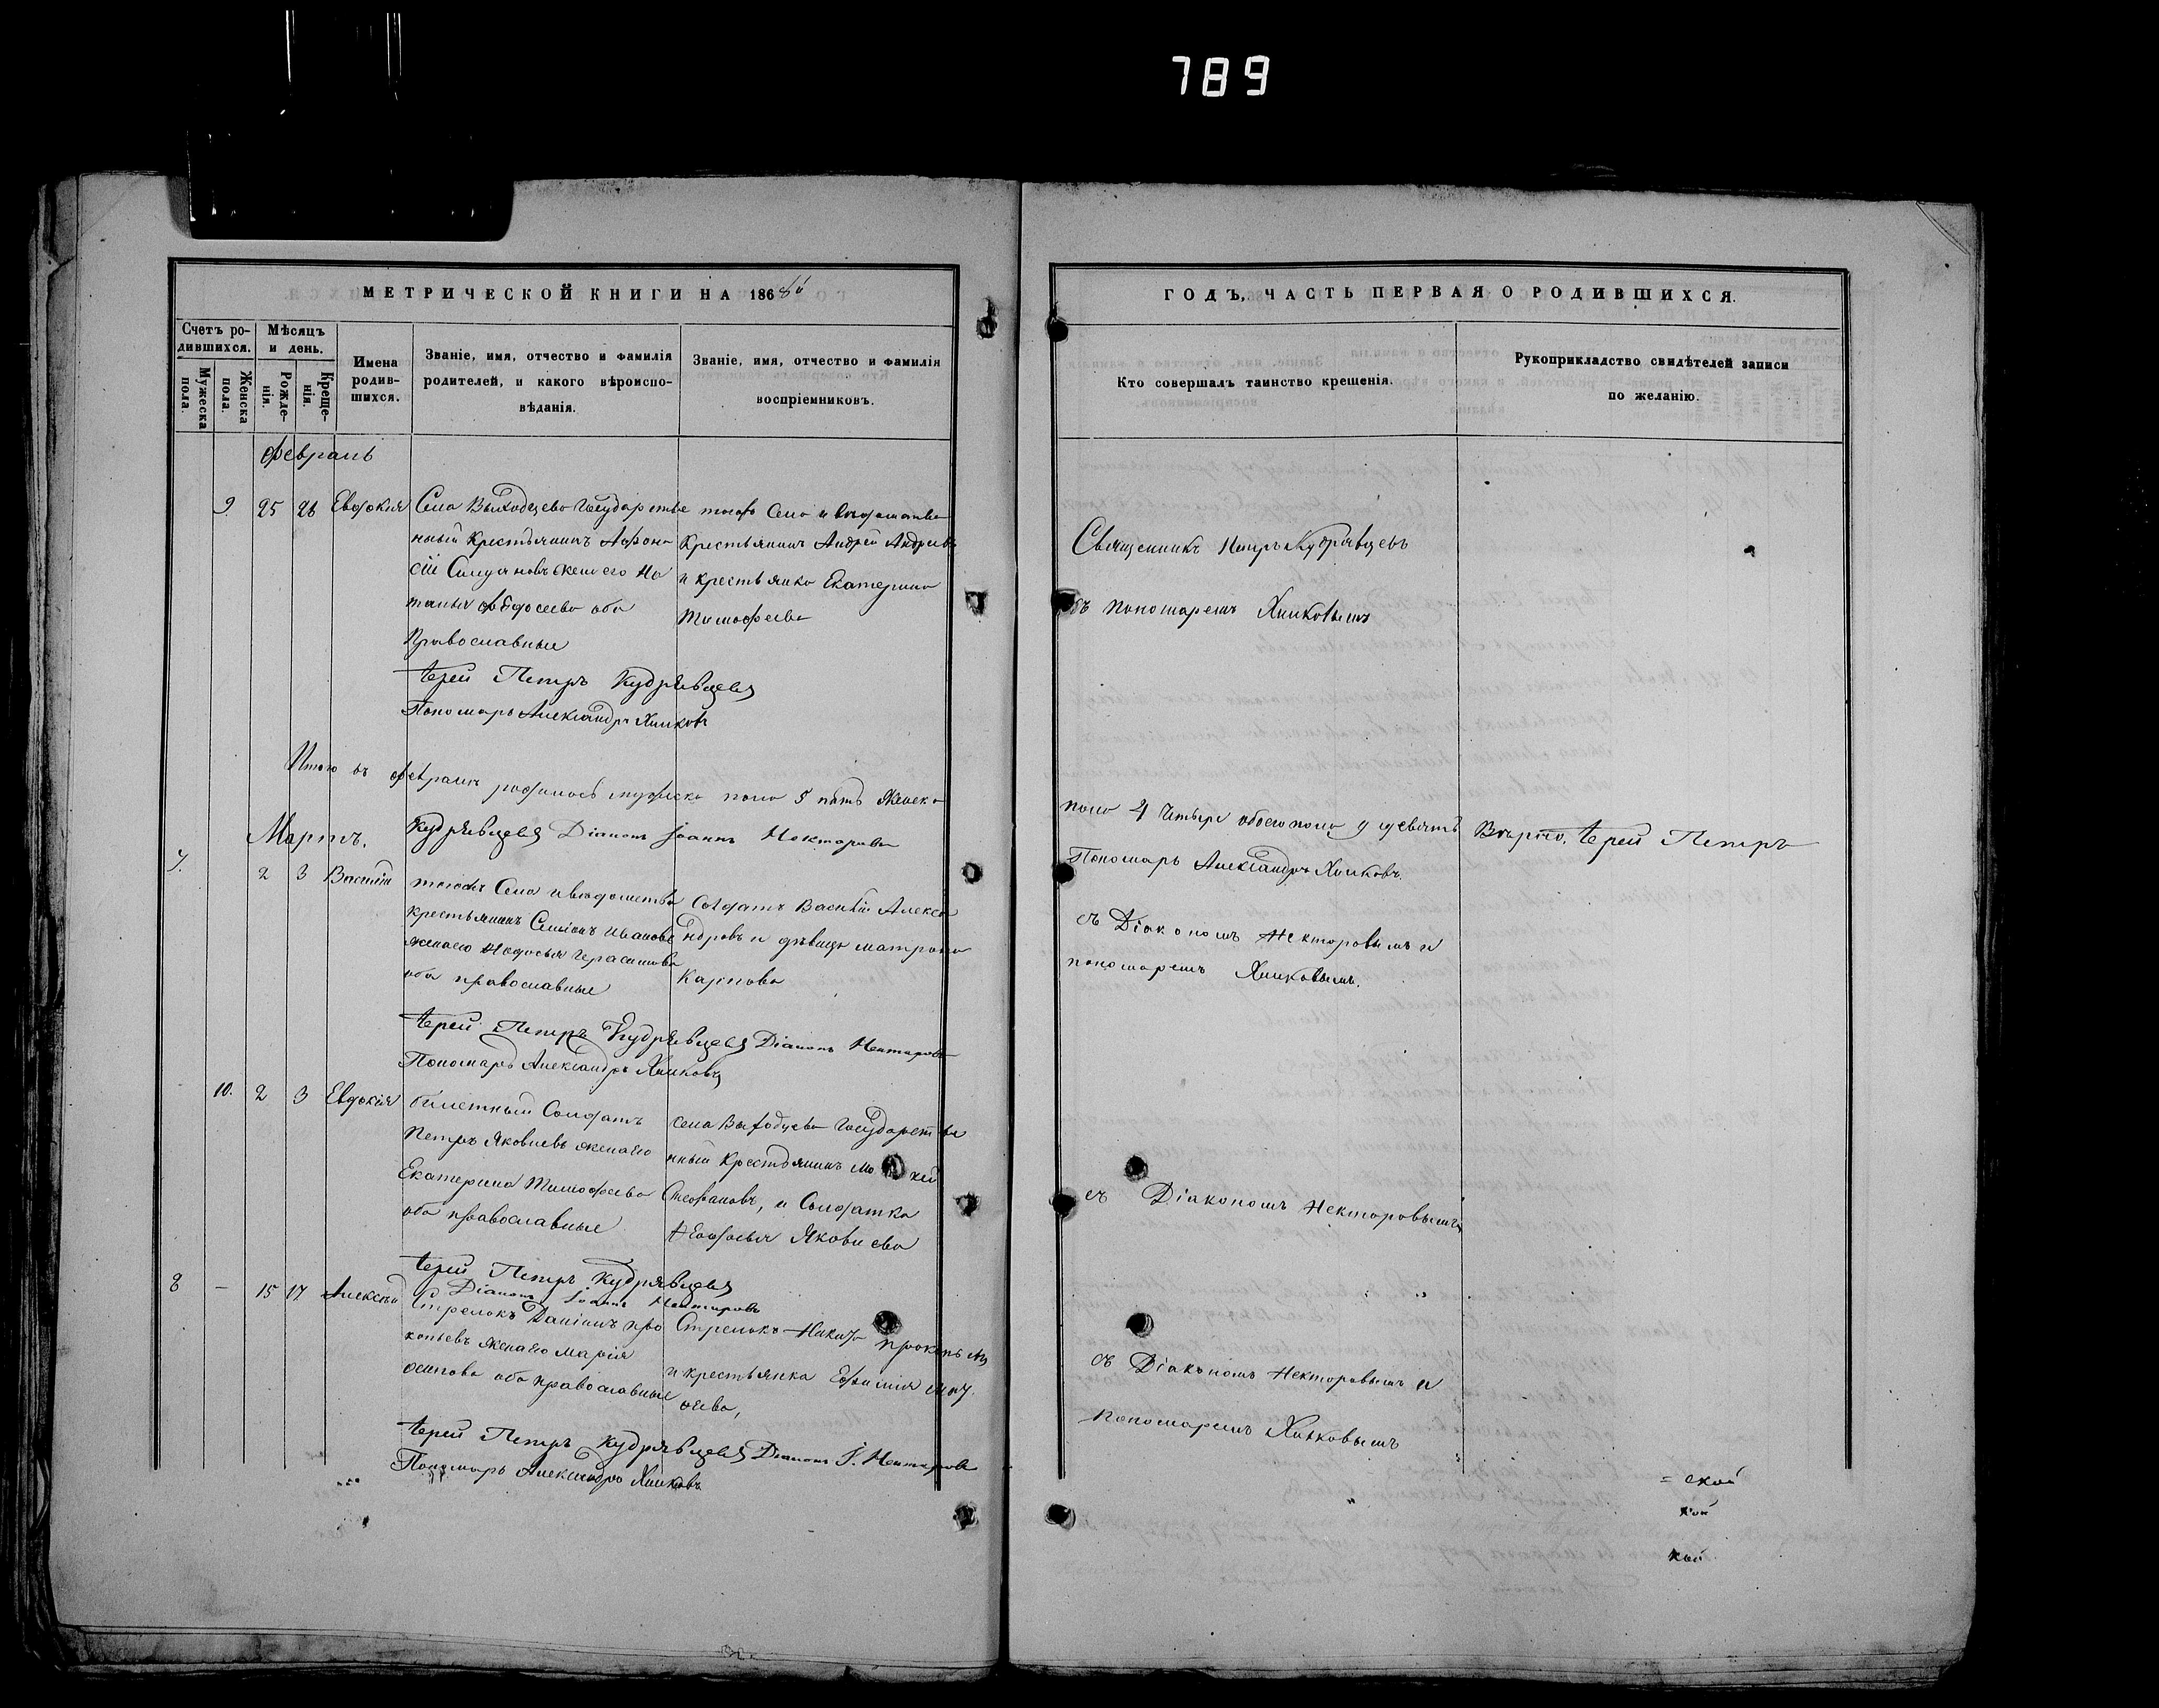 789
МЕТРИЧЕСКОЙ КНИГИ НА 1868й
ГОДЪ, ЧАСТЬ ПЕРВАЯ О РОДИВШИХСЯ.
Счетъ ро-
дившихся.
Мѣсяцъ
и день.
Мужеска
пола.
Женска
пола.
Рожде-
нія.
Креще-
нія.
Имена
родив-
шихся.
Званіе, имя, отчество и фамилія
родителей, и какого вѣроиспо-
вѣданія.
Званіе, имя, отчество и фамилія
воспріемниковъ.
Кто совершалъ таинство крещенія.
Рукоприкладство свидѣтелей записи
по желанію.
Февраль
9. 25 26 Евдокия
Села Выходцева Государстве
нный Крестьянинъ Афона
сій жена его На
обa
Православные
того Села и
Крестьянинъ Андрей Андреевъ
и крестьянка Екатерина
Тимофеева
Священникъ Петръ Кудрявцевъ
съ пономаремъ Хилковымъ
Іерей Петръ Кудрявцевъ
Пономарь Александръ Хилковъ
Итого въ Февралѣ родилось мужеска пола 5 пять Женска
пола 4 четыре обоего пола 9 девять Вѣрно. Іерей Петръ
Кудрявцевъ Діаконъ Іоаннъ Нектаровъ
Пономарь Александръ Хилковъ.
Мартъ.
7. 2 3 Василій
тогожъ Села и ведомства
крестьянинъ Семіонъ Ивановъ
жена его Герасимова
оба православные
Солдатъ Василій Алекса
ндровъ и дѣвица матрона
Карпова
съ Діакономъ Нектаровымъ и
пономаремъ Хилковымъ.
Іерей Петръ Кудрявцевъ Діаконъ Нектаровъ
Пономарь Александръ Хилковъ
10. 2 3 Евдокія
билетный Солдатъ
Петръ Яковлевъ жена его
Екатерина Тимофеева
оба православные
села Выходцева Государстве
нный Крестьянинъ
Стефановъ, и Солдатка
Яковлева
съ Діакономъ Нектаровымъ
Іерей Петръ Кудрявцевъ
Діаконъ Іоаннъ Нектаровъ
8 — 15 17 Алексѣй
Стрелокъ Даніилъ про
копьевъ жена его Марія
осипова оба православные
Стрелокъ Никита прокопьевъ
и крестьянка Ефимія
съ Діакономъ Нектаровымъ и
пономаремъ Хилковымъ
Іерей Петръ Кудрявцевъ Діаконъ І. Нектаровъ
Пономарь Александръ Хилковъ
ской
кой
кой